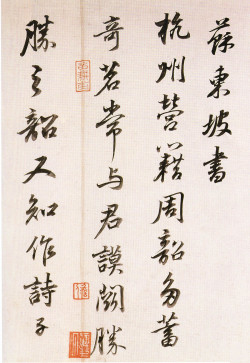 蘇東坡書
杭州營籍周韶多蓄
奇茗常与君謨鬬勝
勝之韶又知作詩子